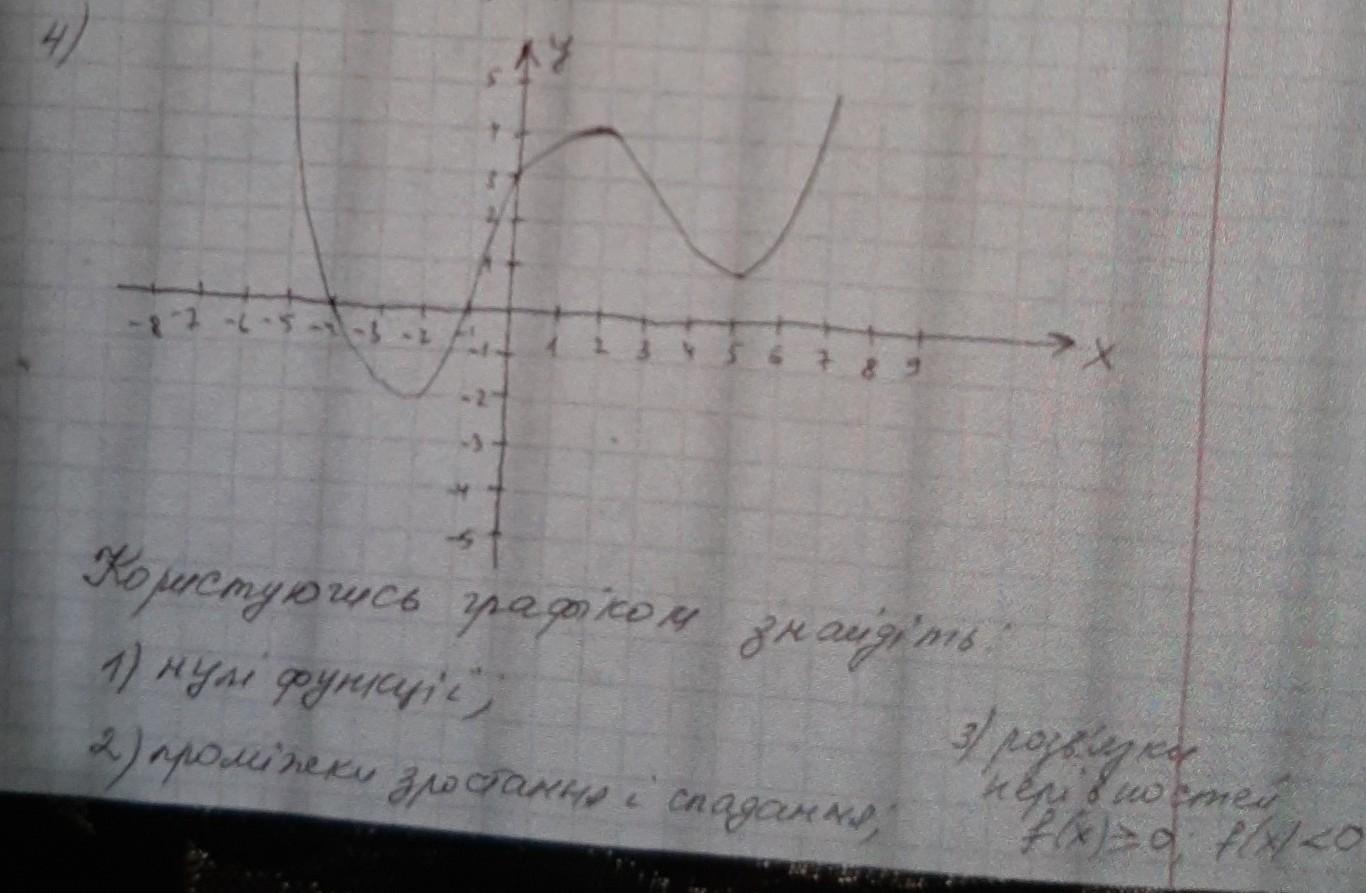 4)
y
5
4
3
2
1
-8 -7 -6 -5 -4 -3 -2 -1 1 2 3 4 5 6 7 8 9 x
-1
-2
-3
-4
-5
Користуючись графіком знайдіть:
1) нулі функції;
2) проміжки зростання і спадання;
3) розв'язки
нерівностей
f(x)≥0; f(x)<0